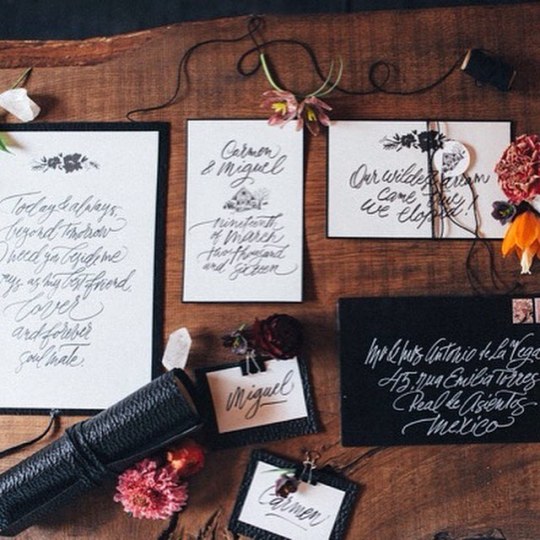 Today & always,
beyond tomorrow
need you beside me
as my best friend,
lover
and forever
soul mate.
Carmen
& Miguel
nineteenth
of March
two thousand
and sixteen
Our wildest dream
came true
we eloped!
Miguel
Carmen
Mr & Mrs Antonio de la Vega
45, rua Emilia Torres
Real de Asientos
Mexico